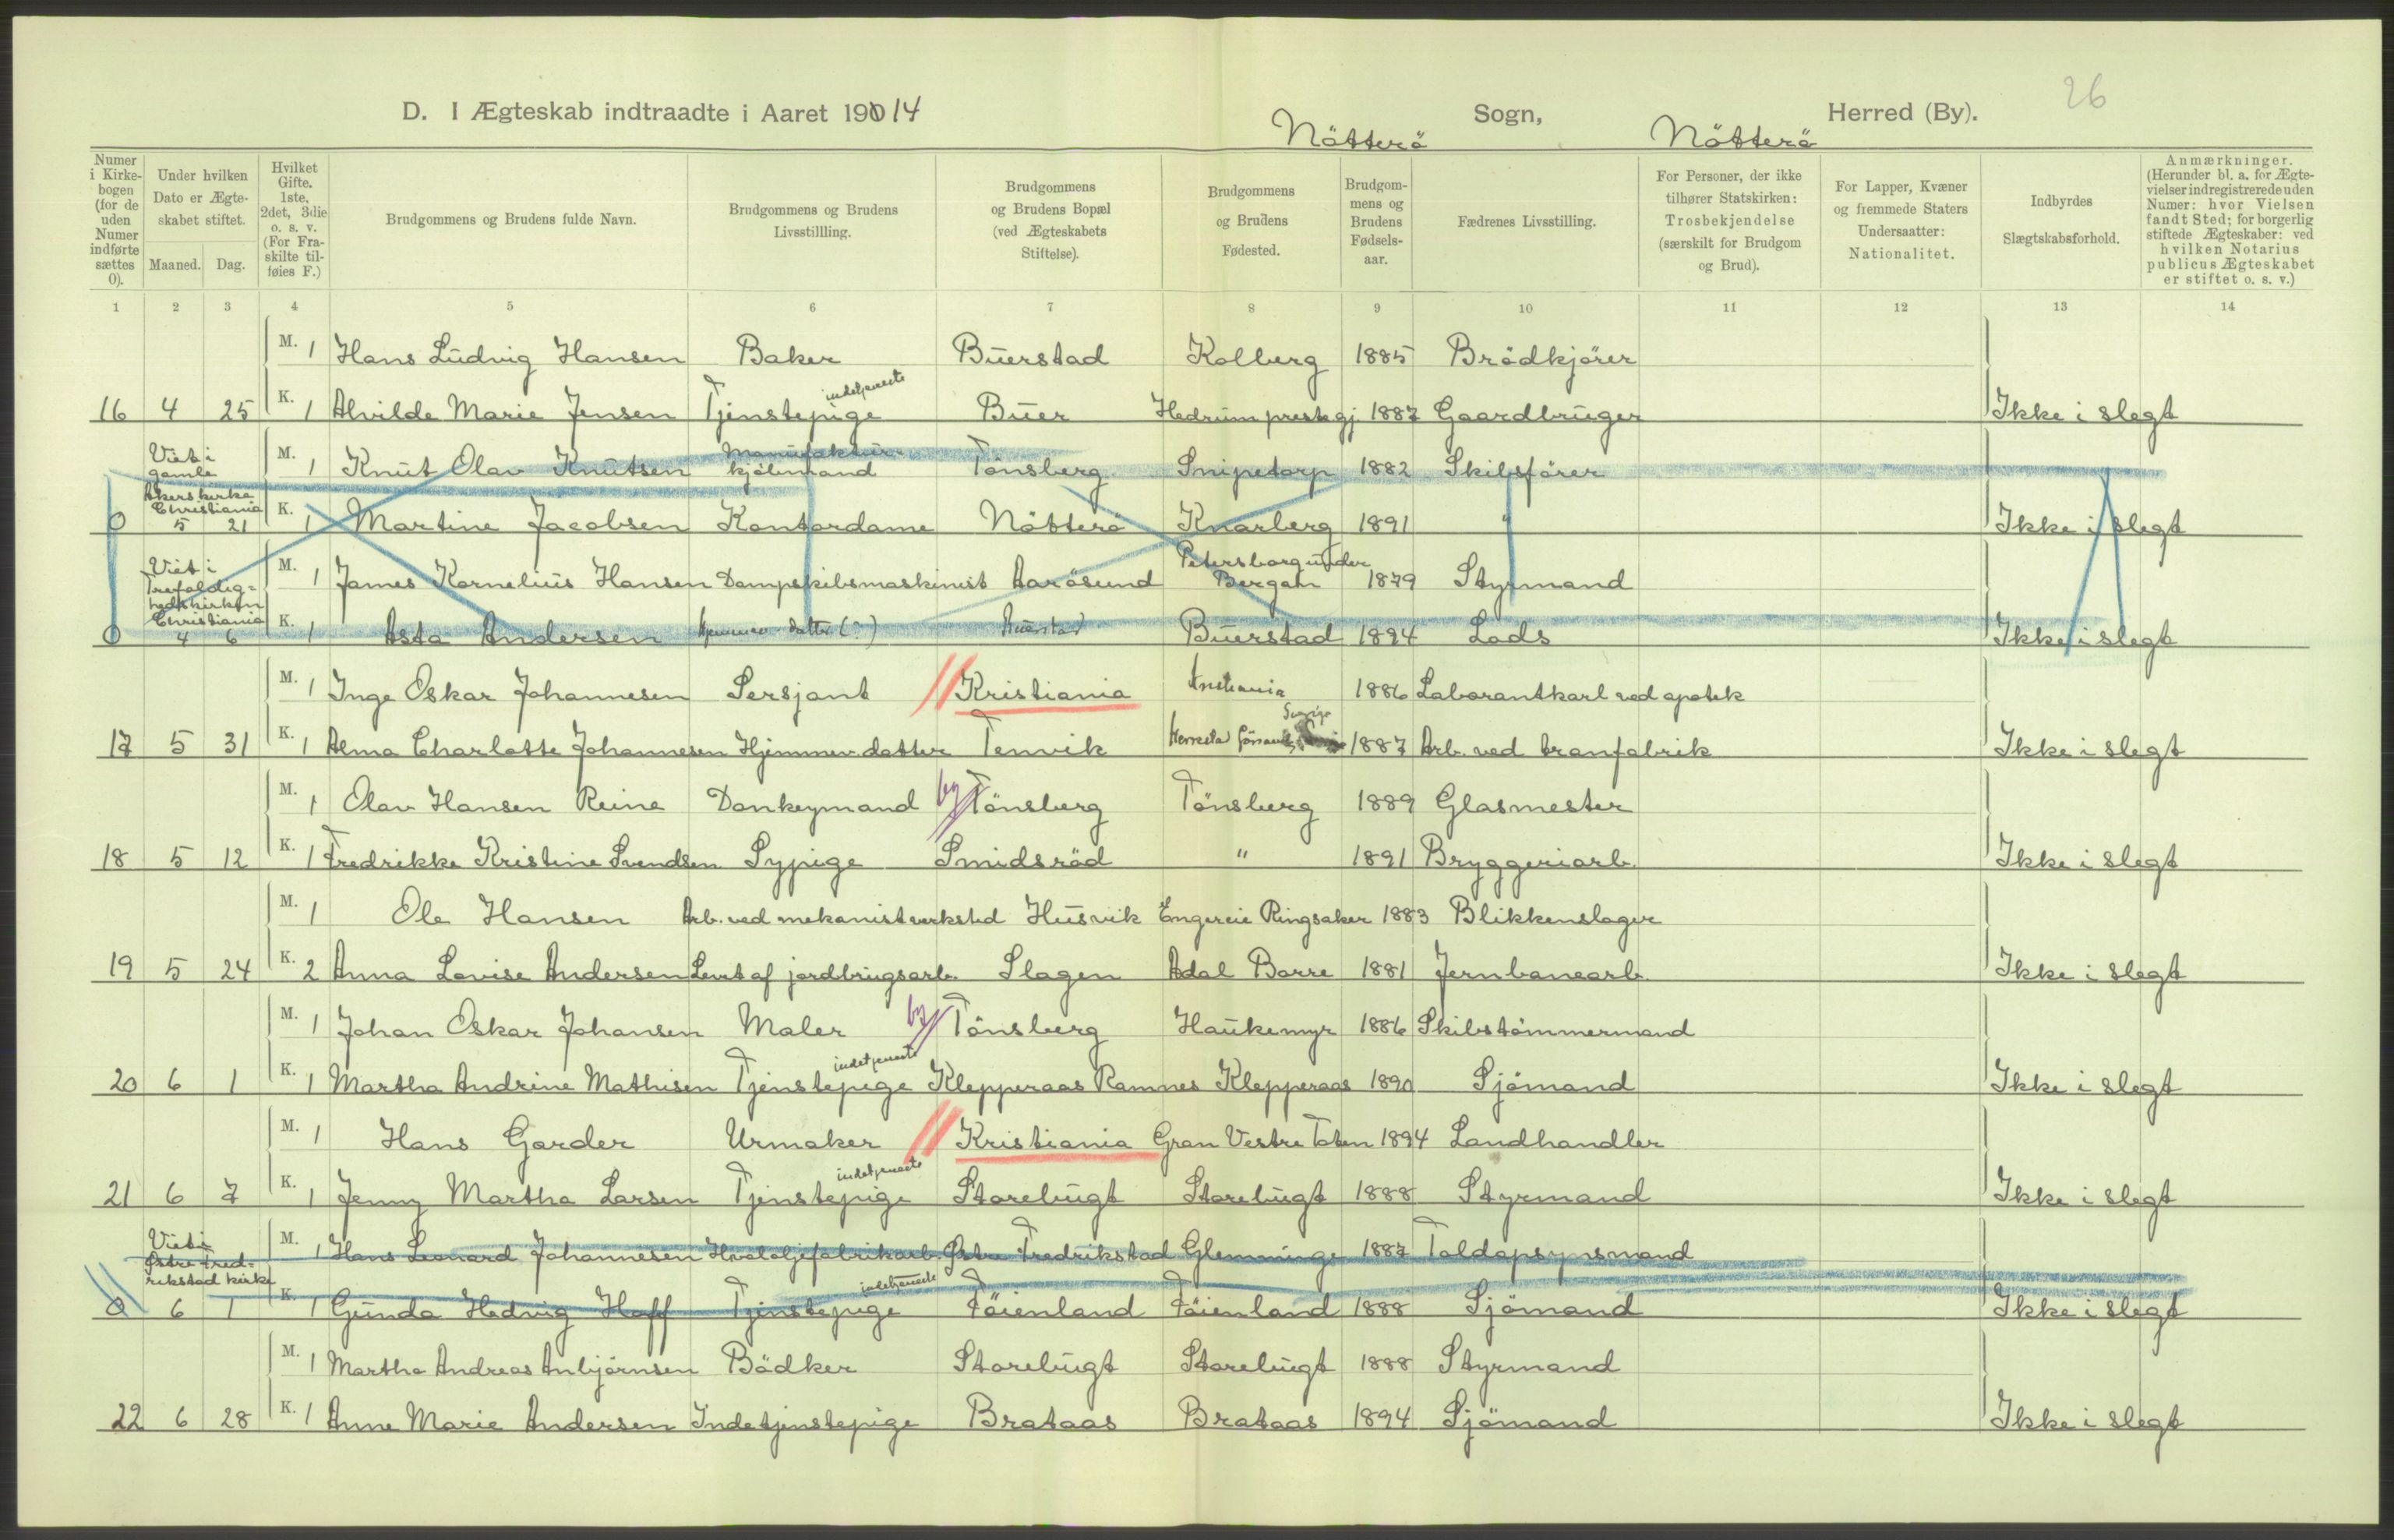 26
D. I Ægteskab indtraadte i Aaret 190 14 Nötterö Sogn, Nötterö Herred (By).
Numer i Kirke- bogen (for de uden Numer indførte sættes 0).
Under hvilken Dato er Ægte- skabet stiftet.
Maaned. Dag.
Hvilket Gifte. 1ste, 2det, 3die o. s. v. (For Fra- skilte til- føies F.)
Brudgommens og Brudens fulde Navn.
Brudgommens og Brudens Livsstillling.
Brudgommens og Brudens Bopæl (ved Ægteskabets Stiftelse).
Brudgommens og Brudens Fødested.
Brudgom- mens og Brudens Fødsels- aar.
Fædrenes Livsstilling.
For Personer, der ikke tilhører Statskirken: Trosbekjendelse (særskilt for Brudgom og Brud).
For Lapper, Kvæner og fremmede Staters Undersaatter: Nationalitet.
Indbyrdes Slægtskabsforhold.
Anmærkninger. (Herunder bl. a. for Ægte- vielser indregistrerede uden Numer: hvor Vielsen fandt Sted; for borgerlig stiftede Ægteskaber: ved hvilken Notarius publicus Ægteskabet er stiftet o. s. v.)
1 2 3 4 5 6 7 8 9 10 11 12 13 14
M. 1 Hans Ludvig Hansen Baker Buerstad Kolberg 1885 Brödkjörer
indetjeneste
16 4 25 K. 1 Alvilde Marie Jensen Tjenstepige Buer Hedrum prestegj. 1887 Gaardbruger Ikke i slegt
Viet i gamle Akers kirke Christiania
M. 1 Knut Olav Knutsen Manufaktur- kjöbmand Tönsberg Snipetorp 1882 Skibsförer
0 5 21 K. 1 Martine Jacobsen Kontordame Nötterö Knarberg 1891 " Ikke i slegt
Viet i Trefoldig= hedskirken Christiania
M. 1 James Kornelius Hansen Dampskibsmaskinist Aarösund Petersborg under Bergen 1879 Styrmand
0 4 6 K. 1 Asta Andersen Hjemmev. datter (?) Buerstad Buerstad 1894 Lods Ikke i slegt
M. 1 Inge Oskar Johannesen Sersjant Kristiania Kristiania 1886 Laborantkarl ved apotek
Sverige
17 5 31 K. 1 Alma Charlotte Johannesen Hjemmev. datter Tenvik 1887 Arb. ved tranfabrik Ikke i slegt
M. 1 Olav Hansen Reine Donkeymand by Tönsberg Tönsberg 1889 Glasmester
18 5 12 K. 1 Fredrikke Kristine Svendsen Sypige Smidsröd " 1891 Bryggeriarb. Ikke i slegt
M. 1 Ole Hansen Arb. ved mekanisk verksted Husvik Engereie Ringsaker 1883 Blikkenslager
19 5 24 K. 2 Anna Lovise Andersen Levet af jordbrugsarb. Slagen Adal Borre 1881 Jernbanearb. Ikke i slegt
M. 1 Johan Oskar Johansen Maler by Tönsberg Haukemyr 1886 Skibstömmermand
indetjeneste
20 6 1 K. 1 Martha Andrine Mathisen Tjenstepige Klepperaas Ramnes Klepperaas 1890 Sjömand Ikke i slegt
M. 1 Hans Garder Urmaker Kristiania Gran Vestre Toten 1894 Landhandler
indetjeneste
21 6 7 K. 1 Jenny Martha Larsen Tjenstepige Storebugt Storebugt 1888 Styrmand Ikke i slegt
Viet i Østre Fred= rikstad kirke
M. 1 Hans Leonard Johannesen Hvaloljefabrikarb. Østre Fredrikstad Glemminge 1887 Toldopsynsmand
indetjeneste
0 6 1 K. 1 Gunda Hedvig Hoff Tjenstepige Föienland Föienland 1888 Sjömand Ikke i slegt
M. 1 Martha Andreas Anbjörnsen Bödker Storebugt Storebugt 1888 Styrmand
22 6 28 K. 1 Anne Marie Andersen Indetjenstepige Brataas Brataas 1894 Sjömand Ikke i slegt